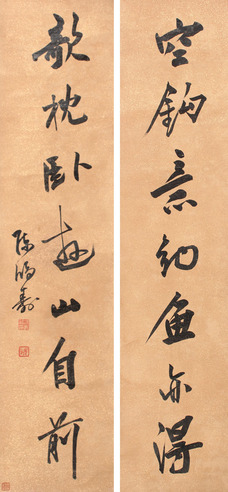 空鈎意釣魚亦得
欹枕臥遊山自前
陳鴻壽